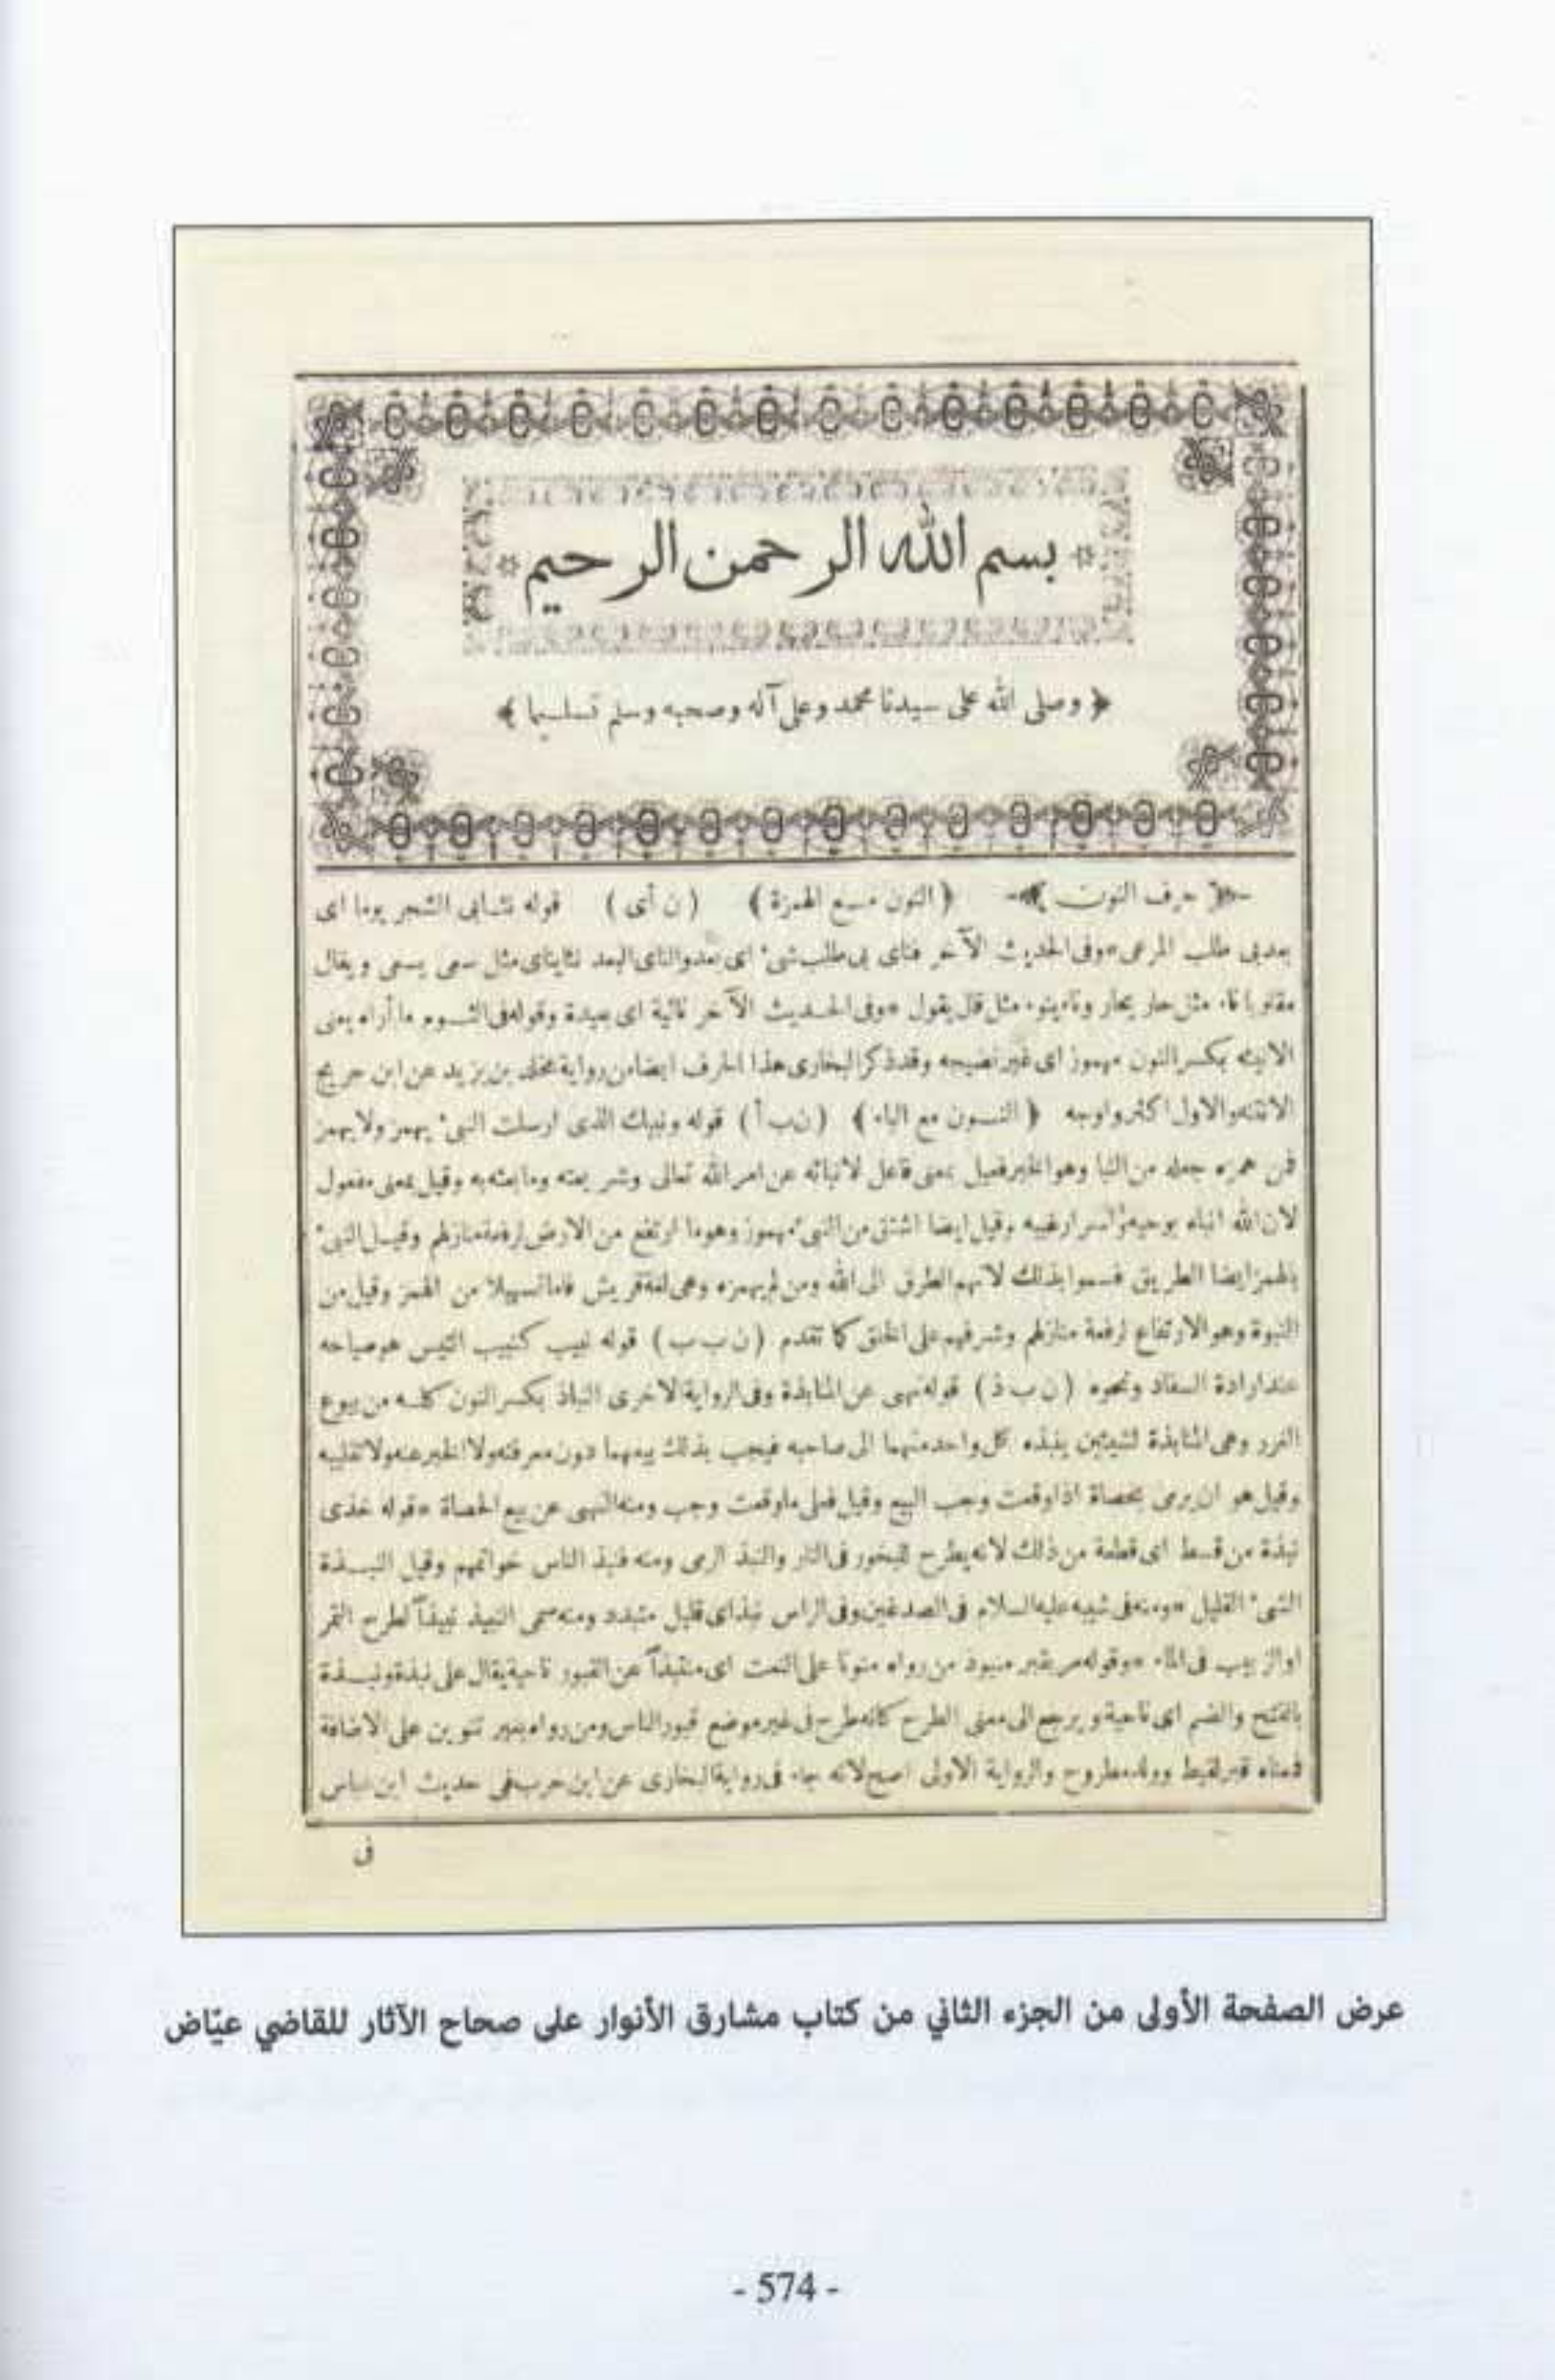 بسم الله الرحمن الرحيم
﴿ وصلى الله على سيدنا محمد وعلى آله وصحبه وسلم تسليما ﴾
﴿ حرف النون ﴾ ﴿ النون مع الهمزة ﴾ ( ن أى ) قوله نئا بى الشجر يوما اى
بعد بى طلب المرعى * وفى الحديث الآخر فناى بى طلب شىء اى بعد والناى البعد نئا يناى مثل سعى يسعى ويقال
مقلوبا ناء مثل حار يحار وناء ينوء مثل قال يقول * وفى الحديث الآخر نائية اى بعيدة وقوله فى الثوم ما أراه يعنى
الانيئه بكسر النون مهموز اى غير نضيجه وقد ذكر البخارى هذا الحرف ايضا من رواية مخلد بن يزيد عن ابن جريج
الانتنه والاول اكثر واوجه ﴿ النون مع الباء ﴾ ( ن ب أ ) قوله ونبيك الذى ارسلت النبىء يهمز ولا يهمز
فمن همزه جعله من النبا وهو الخبر فعيل بمعنى فاعل لانبائه عن امر الله تعالى وشريعته وما بعثه به وقيل بمعنى مفعول
لان الله انباه بوحيه واسرار غيبه وقيل ايضا اشتق من النبىء مهموز وهو ما ارتفع من الارض لرفعة منازلهم وقيل النبىء
بالهمز ايضا الطريق فسموا بذلك لانهم الطرق الى الله ومن لم يهمزه وهى لغة قريش فاما تسهيلا من الهمز وقيل من
النبوة وهو الارتفاع لرفعة منازلهم وشرفهم على الخلق كما تقدم ( ن ب ب ) قوله نبيب كنبيب التيس هو صياحه
عند ارادة السفاد ونحوه ( ن ب ذ ) قوله نهى عن المنابذة وفى الرواية الاخرى النباذ بكسر النون كله من بيوع
الغرر وهى المنابذة لشيئين ينبذه كل واحد منهما الى صاحبه فيجب بذلك بيعهما دون معرفته ولا الخبر عنه ولا تقليبه
وقيل هو ان يرمى بحصاة اذا وقعت وجب البيع وقيل فعلى ما وقعت وجب ومنه النهى عن بيع الحصاة * قوله خذى
نبذة من قسط اى قطعة من ذلك لانه يطرح للبخور فى النار والنبذ الرمى ومنه فنبذ الناس خواتمهم وقيل النبذة
الشىء القليل * ومنه فى شيبه عليه السلام فى الصدغين وفى الراس نبذ اى قليل متبدد ومنه سمى النبيذ نبيذاً لطرح التمر
او الزبيب فى الماء * وقوله مر بقبر منبوذ من رواه منونا على النعت اى منتبذاً عن القبور ناحية يقال على نبذة ونبذة
بالفتح والضم اى ناحية ويرجع الى معنى الطرح كانه طرح فى غير موضع قبور الناس ومن رواه بغير تنوين على الاضافة
فمعناه قبر لقيط وولد مطروح والرواية الاولى اصح لانه جاء فى رواية البخارى عن ابن حرب فى حديث ابن عباس
فى
عرض الصفحة الأولى من الجزء الثاني من كتاب مشارق الأنوار على صحاح الآثار للقاضي عيّاض
- 574 -